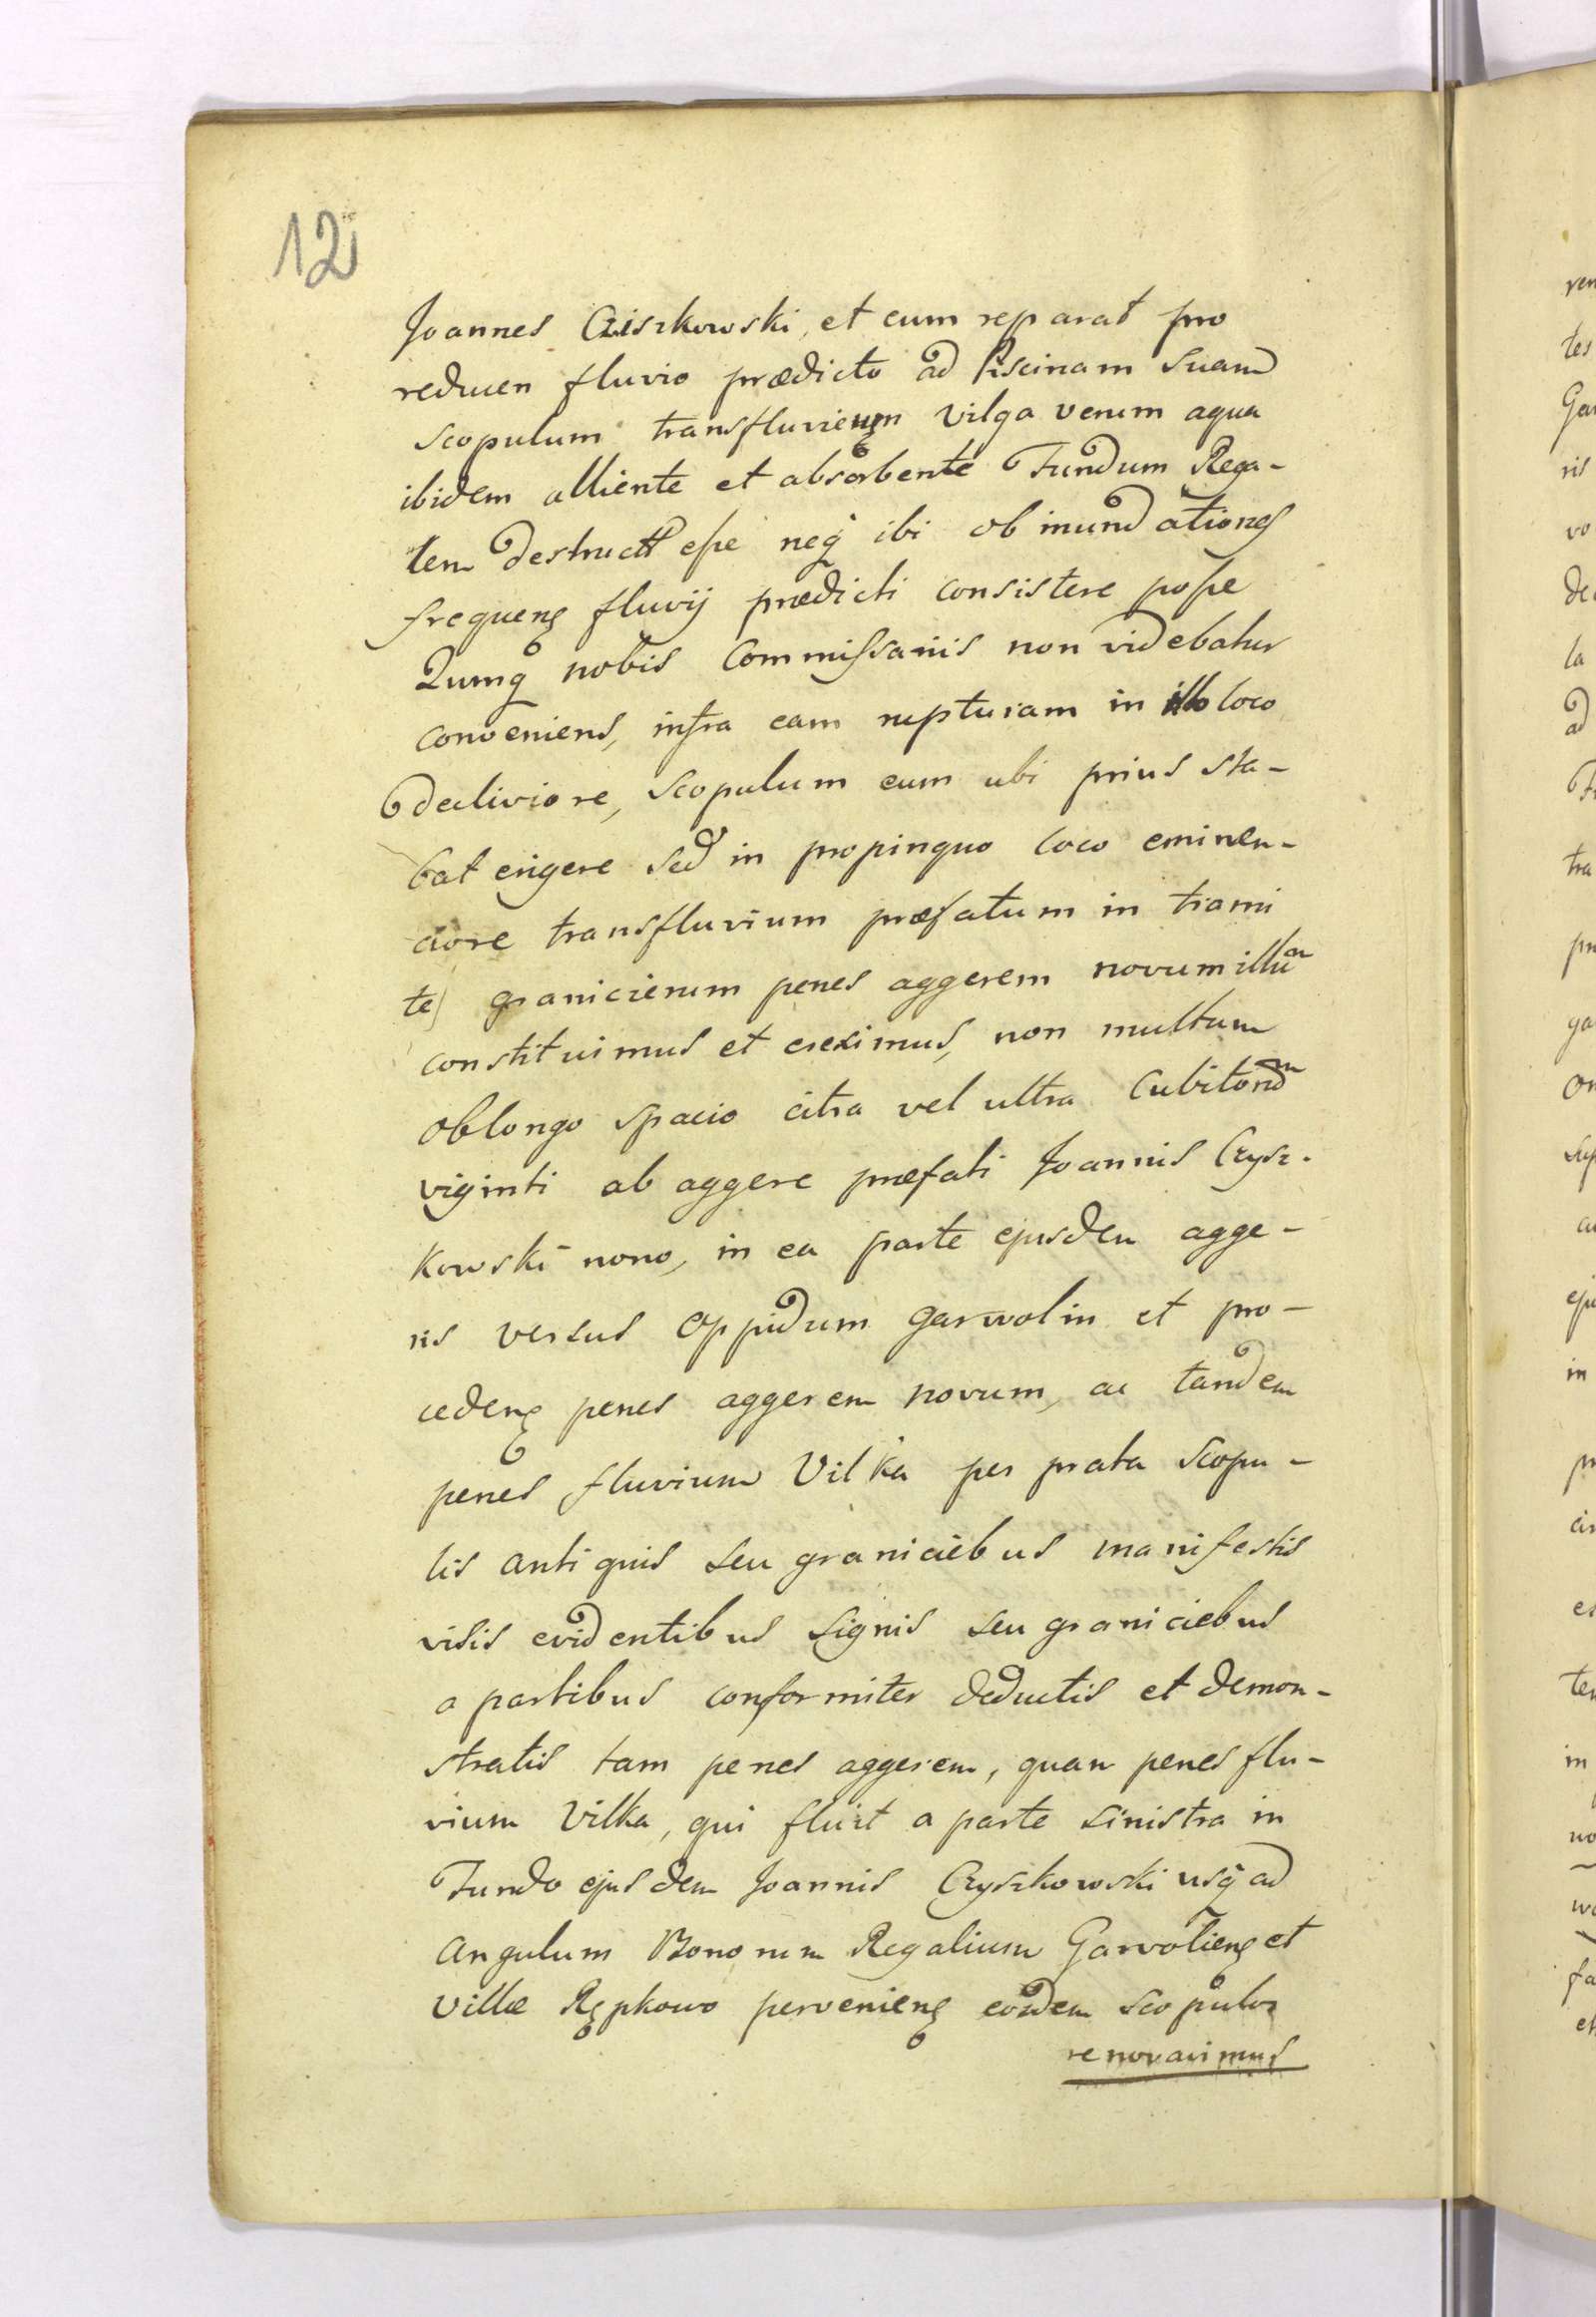 12
Joannes Cziszkowski, et eum reparat pro
reducen fluvio prædicto ad Piscinam Suam
scopulum transfluvien Vilga verum aqua
ibidem alliente et absorbente Fundum Rega-
lem destruct eſse neq ibi ob inundationes
frequenʒ fluvij prædicti consistere poſse
Qumq nobis Commiſsariis non videbatur
conveniens, infra eam rupturam in illo loco
decliviore, scopulum eum ubi prius sta-
bat erigere sed in propinquo loco eminen-
ciore transfluvium præfatum in trami
te) granicierum penes aggerem novum illum
constituimus et ereximus, non multum
oblongo spacio citra vel ultra Cubitorum
viginti ab aggere præfati Joannis Czysz-
kowski nono, in ea parte ejusdem agge-
ris versus Oppidum Garwolin et pro-
cedenʒ penes aggerem novum, ac tandem
penes fluvium Vilka per prata scopu-
lis antiquis seu graniciebus manifestis
visis evidentibus signis seu graniciebus
a partibus conformiter deductis et demon-
stratis tam penes aggerem, quam penes flu-
vium Vilka, qui fluit a parte sinistra in
Fundo ejusdem Joannis Czyszkowski usq ad
Angulum Bonorum Regalium Garvolienʒ et
Villæ Rępkowo pervenienʒ eosdem scopulos
renovavimus